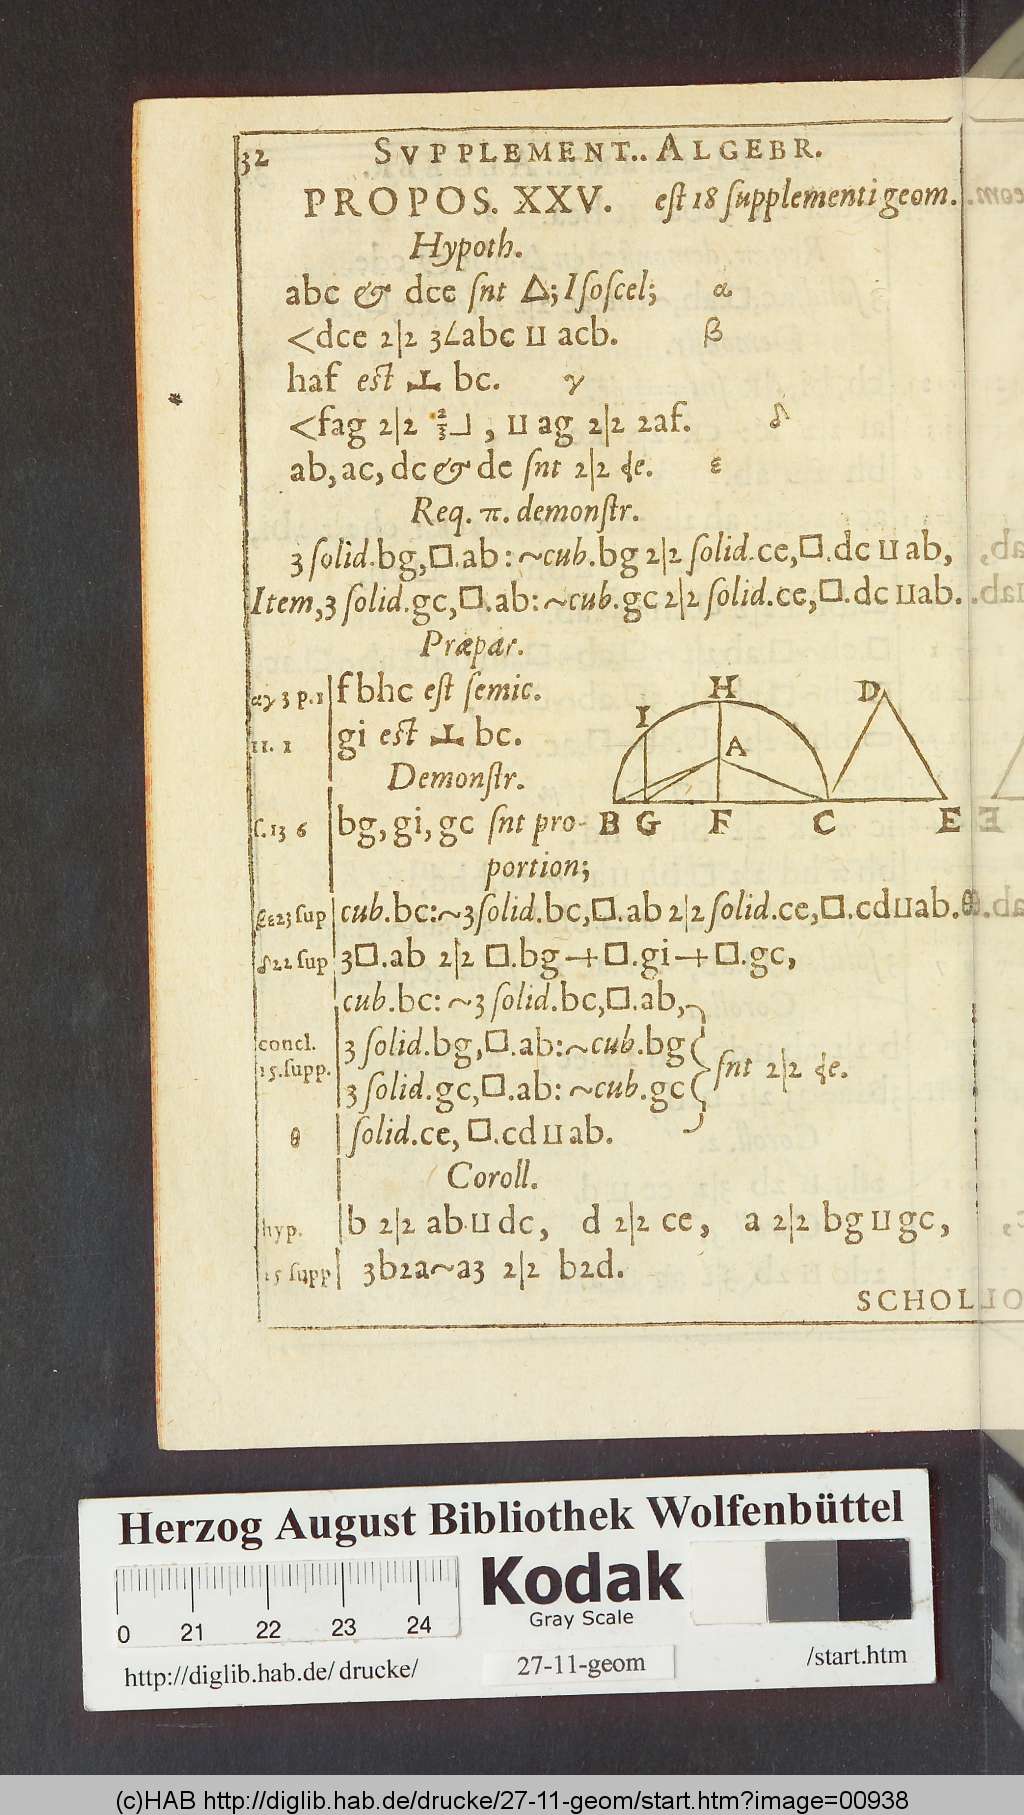 32 SVPPLEMENT.. ALGEBR.
PROPOS. XXV. est 18 supplementi geom.
Hypoth.
abc & dce snt △; Isoscel; α
<dce 2|2 3∠abc ⊔ acb. β
haf est ⊥ bc. γ
<fag 2|2 2/3 ⅃, ⊔ ag 2|2 2af. δ
ab, ac, dc & de snt 2|2 ɖe. ε
Req. π. demonstr.
3 solid.bg,□.ab: ~cub.bg 2|2 solid.ce,□.dc ⊔ ab,
Item,3 solid.gc,□.ab: ~cub.gc 2|2 solid.ce,□.dc ⊔ab.
Præpar.
αγ 3 p.1 fbhc est semic.
11. 1 gi est ⊥ bc.
Demonstr.
H
D
I
A
B G F C E
13 6 bg, gi, gc snt pro-
portion;
23 sup cub.bc:~3solid.bc,□.ab 2|2 solid.ce,□.cd⊔ab.θ
δ22 sup 3□.ab 2|2 □.bg + □.gi + □.gc,
cub.bc: ~3 solid.bc,□.ab,
concl. 3 solid.bg,□.ab:~cub.bg
snt 2|2 ɖe.
15.supp. 3 solid.gc,□.ab: ~cub.gc
θ solid.ce, □.cd ⊔ ab.
Coroll.
hyp. b 2|2 ab ⊔ dc, d 2|2 ce, a 2|2 bg ⊔ gc,
15 supp 3b2a~a3 2|2 b2d.
SCHOL
Herzog August Bibliothek Wolfenbüttel
Kodak
Gray Scale
0 21 22 23 24
http://diglib.hab.de/drucke/ 27-11-geom /start.htm
(c)HAB http://diglib.hab.de/drucke/27-11-geom/start.htm?image=00938